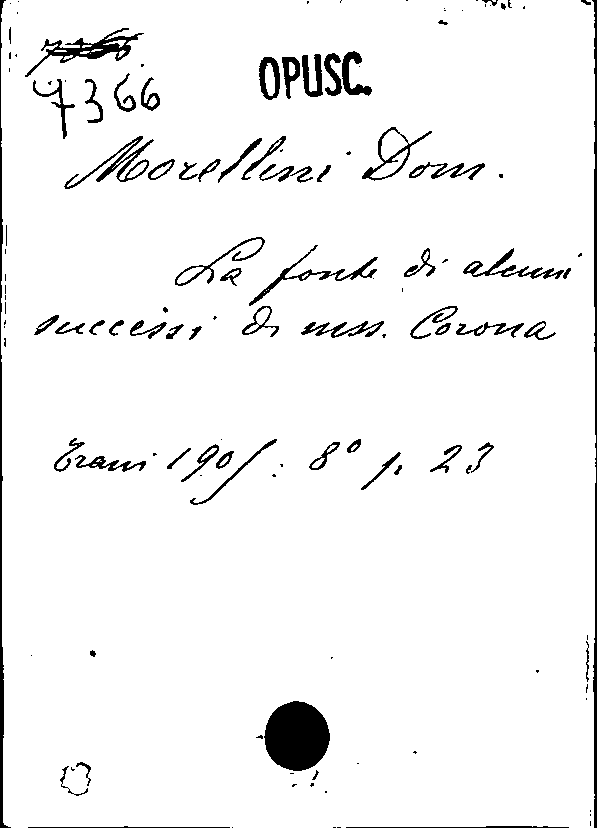 OPUSC.
7366
Morellini Dom.
La fonte di alcuni
successi di mss. Corona
Trani 1905: 8° p. 23